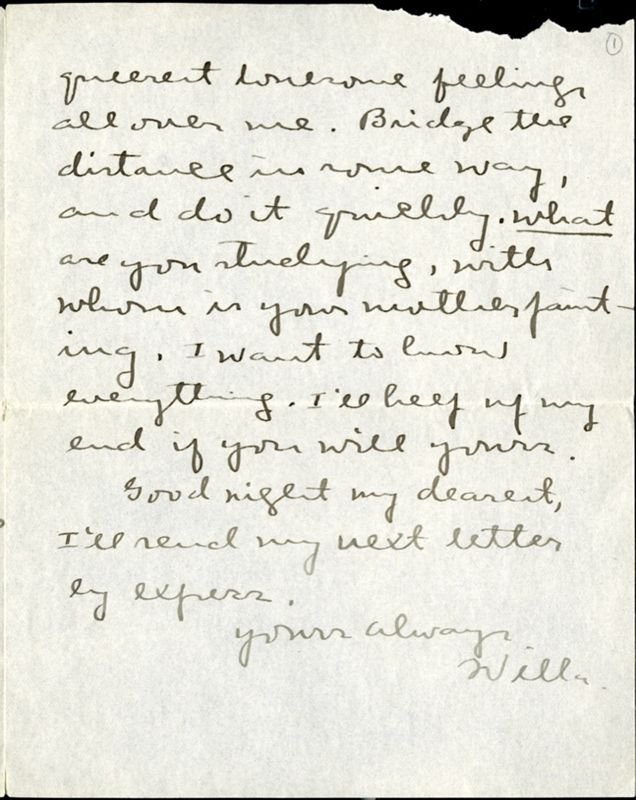 1
queerest lonesome feelings
all over me. Bridge the
distance in some way,
and do it quickly. What
are you studying, with
whom is your mother paint-
ing. I want to know
everything. I'll keep up my
end if you will yours.
Good night my dearest,
I'll send my next letter
by express.
yours always
Willa.